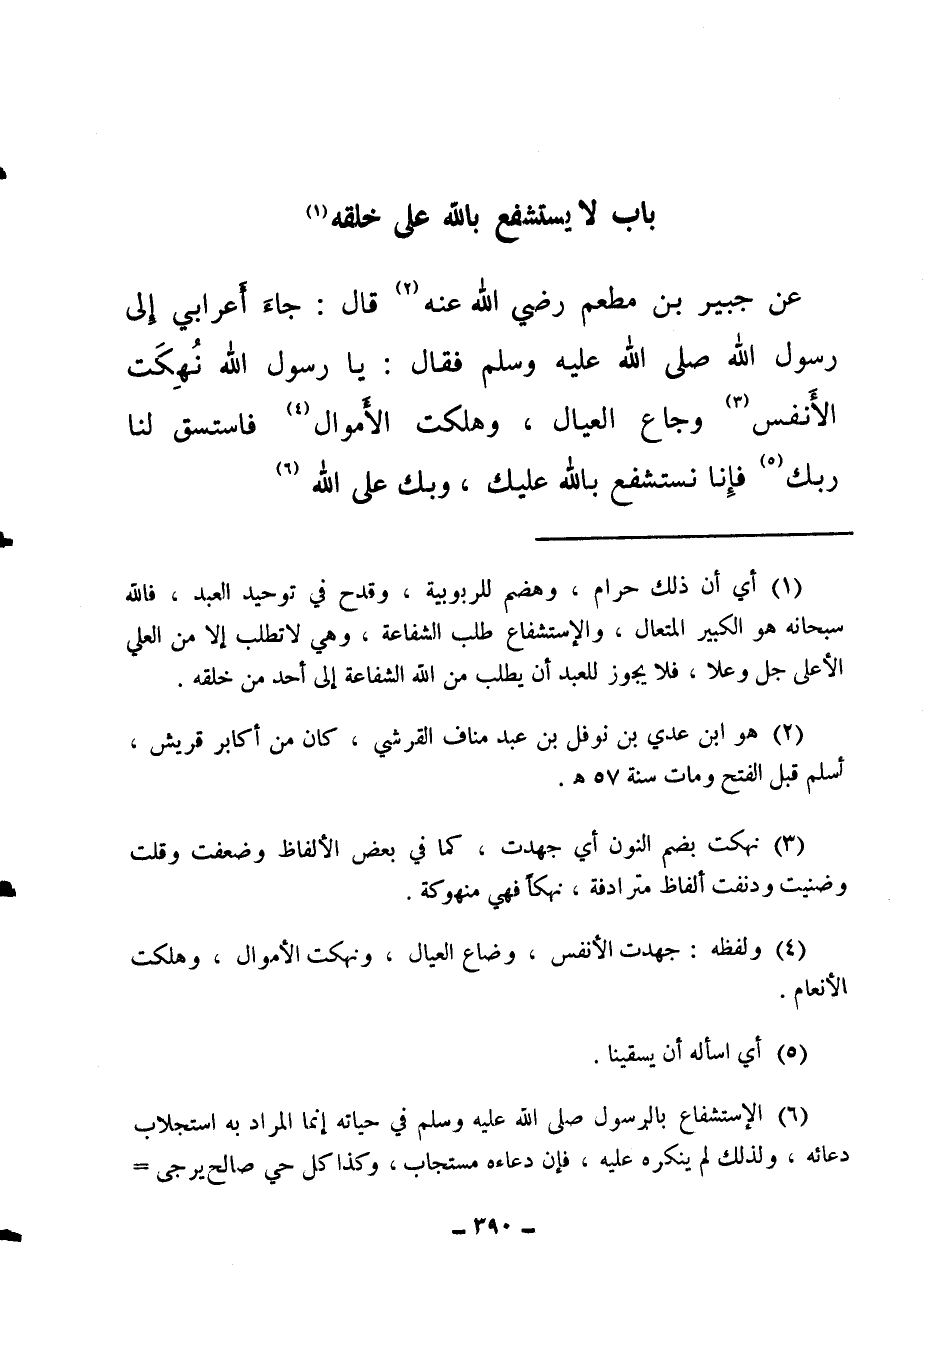 باب لا يستشفع بالله على خلقه (١)
عن جبير بن مطعم رضي الله عنه (٢) قال : جاءَ أَعرابي إِلى
رسول الله صلى الله عليه وسلم فقال : يا رسول الله نُهِكَت
الأَنفس (٣) وجاع العيال ، وهلكت الأَموال (٤) فاستسق لنا
ربك (٥) فإِنا نستشفع بالله عليك ، وبك على الله (٦)
(١) أي أن ذلك حرام ، وهضم للربوبية ، وقدح في توحيد العبد ، فالله
سبحانه هو الكبير المتعال ، والإستشفاع طلب الشفاعة ، وهي لاتطلب إلا من العلي
الأعلى جل وعلا ، فلا يجوز للعبد أن يطلب من الله الشفاعة إلى أحد من خلقه .
(٢) هو ابن عدي بن نوفل بن عبد مناف القرشي ، كان من أكابر قريش ،
أسلم قبل الفتح ومات سنة ٥٧ ه .
(٣) نهكت بضم النون أي جهدت ، كما في بعض الألفاظ وضعفت وقلت
وضنيت ودنفت ألفاظ مترادفة ، نهكاً فهي منهوكة .
(٤) ولفظه : جهدت الأنفس ، وضاع العيال ، ونهكت الأموال ، وهلكت
الأنعام .
(٥) أي اسأله أن يسقينا .
(٦) الإستشفاع بالرسول صلى الله عليه وسلم في حياته إنما المراد به استجلاب
دعائه ، ولذلك لم ينكره عليه ، فإن دعاءه مستجاب ، وكذا كل حي صالح يرجى =
– ٣٩٠ –